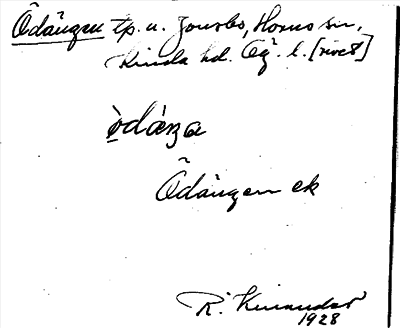 Ödängen tp. u. Jonsbo, Horns sn,
Kinda hd. Ög. l. [rivet]
ö̀dáŋa
Ödängen ek
R. Kinander
1928